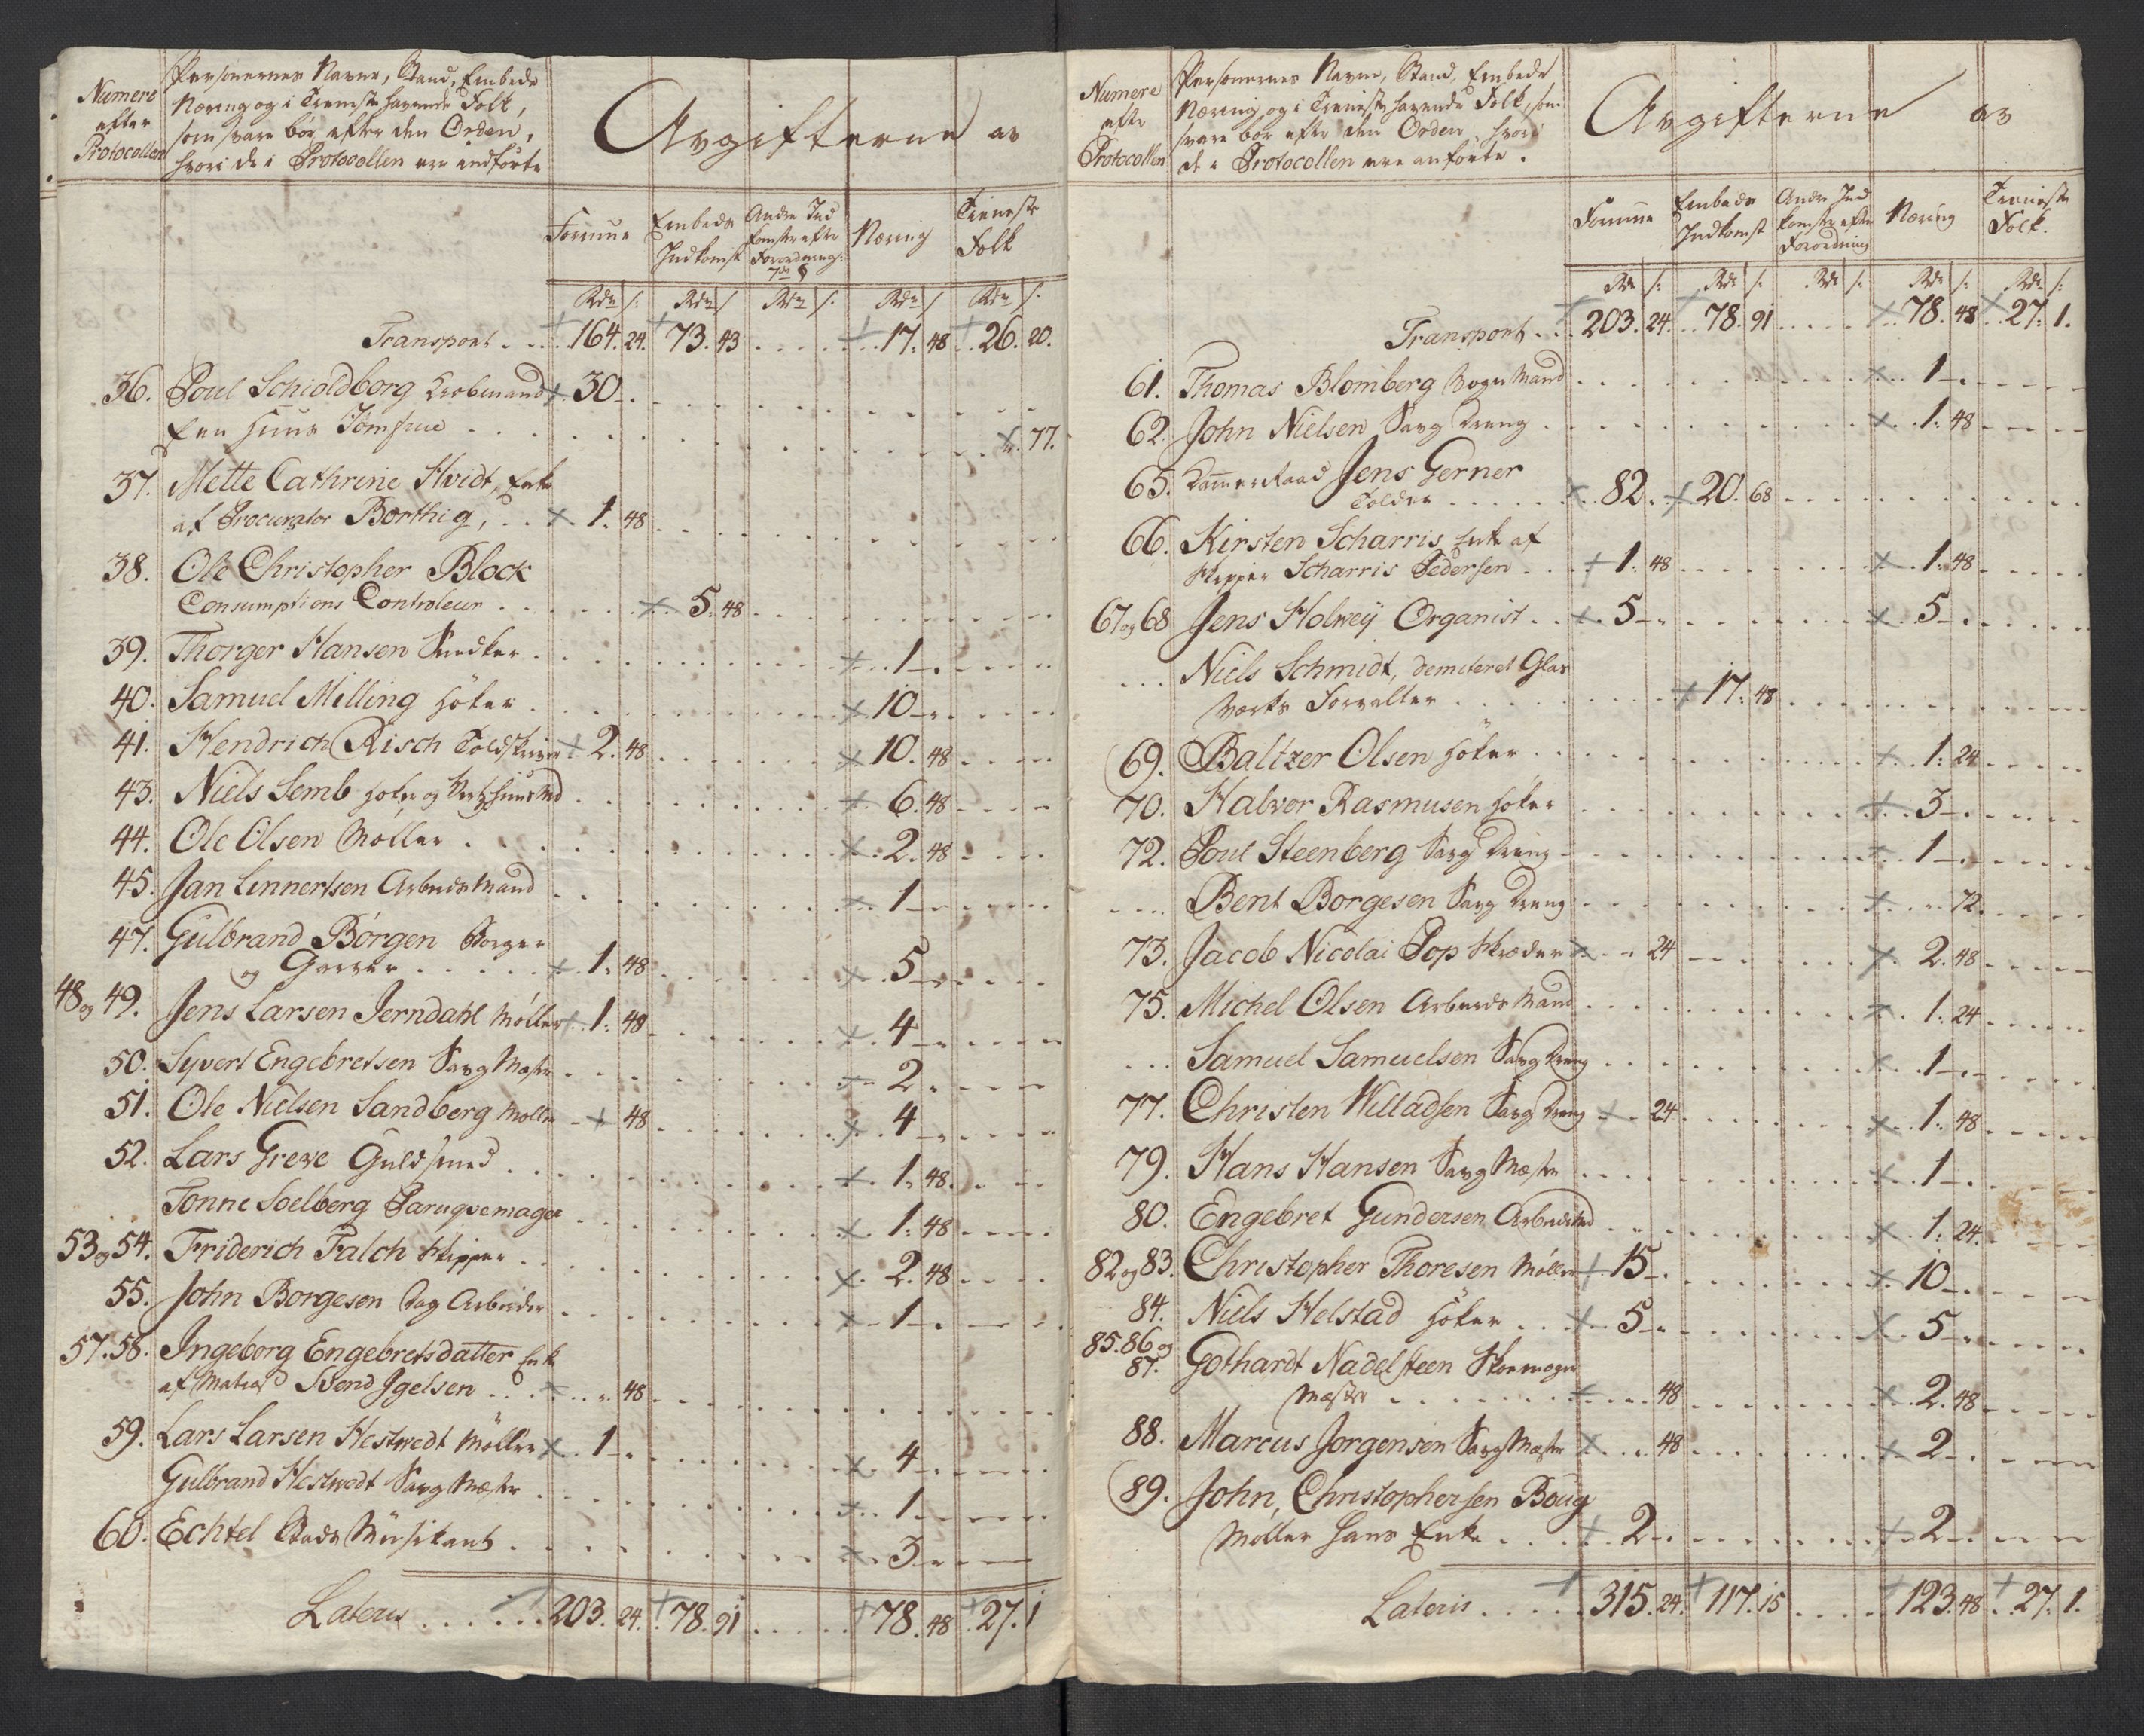 Numere
efter
Protocollen
Personernes Navne, Stand, Embede
Næring og i Tieneste havende Folk,
som svare bør efter den Orden,
hvori de i Protocollen ere indførte
Avgifterne av
Formue
Embeds
Indkomst
Andre Ind
komster efter
Forordnings
7de §
Næring
Tieneste
Folk
Rdr s. Rdr s Rdr s. Rdr s Rdr s.
Transport . . . 164. 24. 73. 43 . . . . 17. 48 . 26. 20.
36. Poul Schioldborg Kiøbmand 30 - .
Een Huus Jomfrue . . . 77.
37. Mette Cathrine Hvidt, Enke
af Procurator Borthig, . . 1. 48
38. Ole Christopher Block
Consumptions Controleur . . . . 5. 48
39. Thorger Hansen Snedker . . . 1 -
40. Samuel Milling Høker . . . 10 -
41. Hendrich Risch Toldskriver 2. 48 . . . 10. 48
43. Niels Semb Høker og Vertshuusmd . . . 6. 48
44. Ole Olsen Møller . . . 2. 48
45. Jan Linnertsen Arbeidsmand . . . 1 -
47. Gulbrand Børgen Borger
og Garver . . . . . 1. 48 . . . 5 -
48 og 49. Jens Larsen Jerndahl Møller 1. 48 . . . 4 -
50. Syvert Engebretsen Saug Mester . . . 2
51. Ole Nielsen Sandberg Møller - 48 . . . 4 -
52. Lars Greve Guldsmed . . . 1. 48.
Tønne Soelberg Paruqvemager . . . 1. 48
53 og 54. Friderich Falch Skipper . . . 2. 48
55. John Borgesen Dag Arbeider . . . 1 -
57. 58. Ingeborg Engebretsdatter Enke
af Matros Svend Igelsen . . . 48
59. Lars Larsen Hestvedt Møller 1 - . . . 4 -
Gulbrand Hestvedt Saug Mester . . . 1 -
60. Echtel Stads Musikant . . . 3 -
Lateris . . . . . . 203. 24. 78. 91 . . . . 78. 48 . 27. 1
Numere
efter
Protocollen
Personernes Navne, Stand, Embede
Næring, og i Tieneste havende Folk, som
svare bør efter den Orden, hvori
de i Protocollen ere anførte.
Avgifterne av
Formue
Embeds
Indkomst
Andre Ind
komster efter
Forordning
Næring
Tieneste
Folk.
Rdr s. Rdr s. Rdr s. Rdr s. Rdr s.
Transport . . 203. 24. . 78. 91 . . . . . 78. 48 . . 27. 1.
61. Thomas Blomberg Vogn Mand . . . 1 -
62. John Nielsen Saug Dreng . . . 1. 48
65. Kammer Raad Jens Gerner
Tolder . . . . . 82. . 20. 68
66. Kirsten Scharris Enke af
Skipper Scharris Pedersen . . . 1. 48 . . . 1. 48
67 og 68 Jens Holweÿ Organist . . 5 - . . . 5 -
. . . Niels Schmidt, demiteret Glas
Værks Forvalter . . . 17. 48
69. Baltzer Olsen Høker . . . 1. 24
70. Halvor Rasmusen Høker . . . 3 -
72. Poul Steenberg Saug Dreng . . . 1 -
. . . . Bent Borgesen Saug Dreng . . . 72.
73. Jacob Nicolai Pop Skræder . . 24 . . . 2. 48
75. Michel Olsen Arbeids Mand . . . 1. 24
. . . Samuel Samuelsen Saug Dreng . . . 1 -
77. Christen Willadsen Saug Dreng . 24 . . . 1. 48
79. Hans Hansen Saug Mester . . . 1 -
80. Engebret Gundersen Arbeidsmd . . . 1. 24.
82 og 83. Christopher Thoresen Møller 15 - . . . 10 -
84. Niels Helstad Høker . . . 5 - . . . 5 -
85. 86 og
87. Gothardt Nadelsteen Skoemager
Mester . . . 48 . . . 2. 48
88. Marcus Jorgensen Saug Mester . . . 48 . . . 2 -
89. John Christophersen Boug
Møller Hans Enke . . . . 2 - . . . 2 -
Lateris . . . . . 315. 24. 117. 15 . . . . . 123. 48 . . 27. 1.